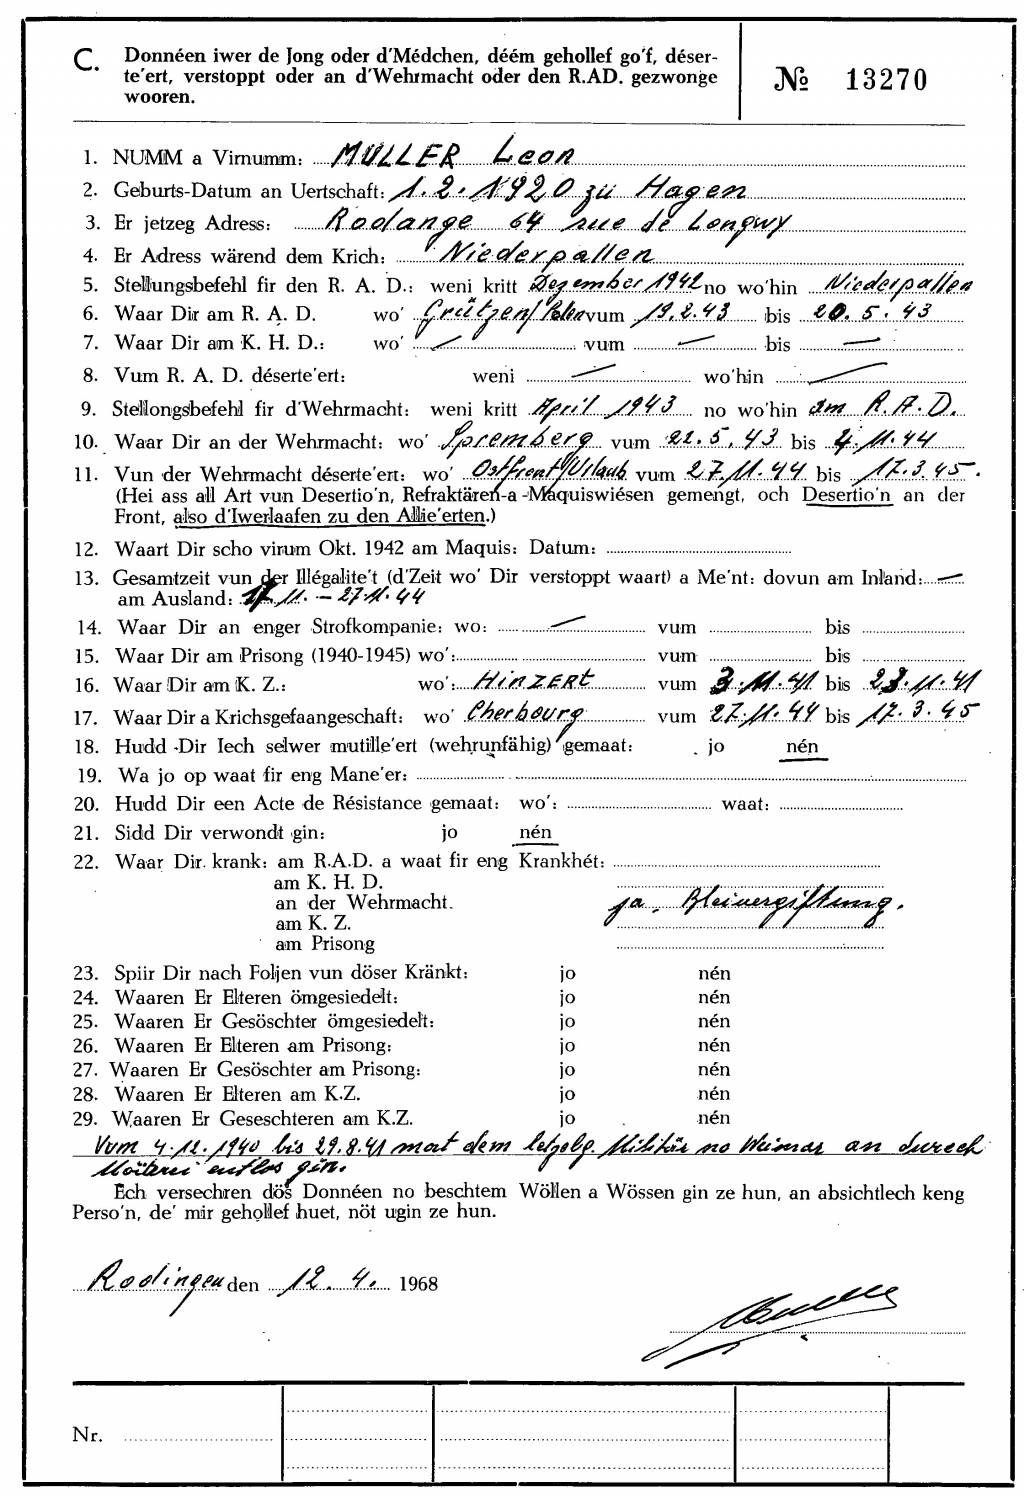 C. Donnéen iwer de Jong oder d'Médchen, déém gehollef go'f, déser-
te'ert, verstoppt oder an d'Wehrmacht oder den R.AD. gezwonge
wooren.
№ 13270
1. NUMM a Virnumm: MULLER Leon
2. Geburts-Datum an Uertschaft: 1.2.1920 zu Hagen
3. Er jetzeg Adress: Rodange 64 rue de Longwy
4. Er Adress wärend dem Krich: Niederpallen
5. Stellungsbefehl fir den R. A. D.: weni kritt Dezember 1942 no wo'hin Niederpallen
6. Waar Dir am R. A. D. wo' Grützen/Polen vum 19.2.43 bis 20.5.43
7. Waar Dir am K. H. D.: wo' — vum — bis —
8. Vum R. A. D. déserte'ert: weni — wo'hin —
9. Stellongsbefehl fir d'Wehrmacht: weni kritt April 1943 no wo'hin am R.A.D.
10. Waar Dir an der Wehrmacht: wo' Spremberg vum 22.5.43 bis 4.11.44
11. Vun der Wehrmacht déserte'ert: wo' Ostfront/Urlaub vum 27.11.44 bis 17.3.45.
(Hei ass all Art vun Desertio'n, Refraktären-a-Maquiswiésen gemengt, och Desertio'n an der
Front, also d'Iwerlaafen zu den Allie'erten.)
12. Waart Dir scho virum Okt. 1942 am Maquis: Datum:
13. Gesamtzeit vun der Illégalite't (d'Zeit wo' Dir verstoppt waart) a Me'nt: dovun am Inland: —
am Ausland: 17.11. – 27.11.44
14. Waar Dir an enger Strofkompanie: wo: — vum bis
15. Waar Dir am Prisong (1940-1945) wo': vum bis
16. Waar Dir am K. Z.: wo': HINZERT vum 3.11.41 bis 23.11.41
17. Waar Dir a Krichsgefaangeschaft: wo' Cherbourg vum 27.11.44 bis 17.3.45
18. Hudd Dir Iech selwer mutille'ert (wehrunfähig) gemaat: jo nén
19. Wa jo op waat fir eng Mane'er:
20. Hudd Dir een Acte de Résistance gemaat: wo': waat:
21. Sidd Dir verwondt gin: jo nén
22. Waar Dir krank: am R.A.D. a waat fir eng Krankhét:
am K. H. D.
an der Wehrmacht. ja, Bleivergiftung.
am K. Z.
am Prisong
23. Spiir Dir nach Foljen vun döser Kränkt: jo nén
24. Waaren Er Elteren ömgesiedelt: jo nén
25. Waaren Er Gesöschter ömgesiedelt: jo nén
26. Waaren Er Elteren am Prisong: jo nén
27. Waaren Er Gesöschter am Prisong: jo nén
28. Waaren Er Elteren am K.Z. jo nén
29. Waaren Er Geseschteren am K.Z. jo nén
Vum 4.12.1940 bis 29.8.41 mat dem letzelg. Militär no Weimar an durech
Moïterei entlos gin.
Ech versechren dös Donnéen no beschtem Wöllen a Wössen gin ze hun, an absichtlech keng
Perso'n, de' mir gehollef huet, nöt ugin ze hun.
Rodingen den 12.4. 1968
Nr.